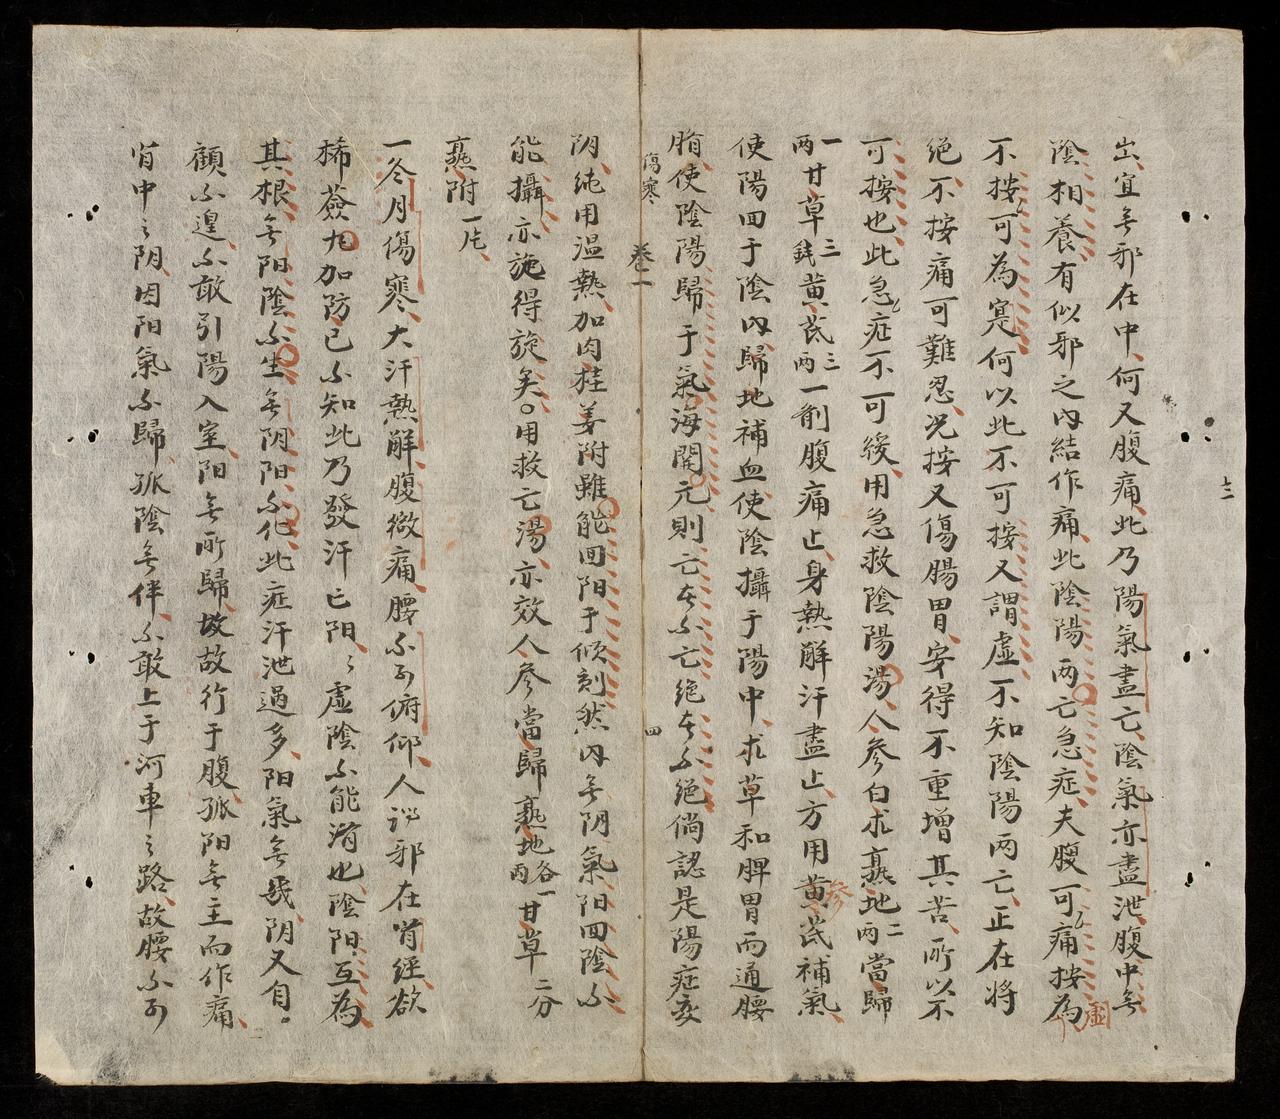 出宜無邪在中何又腹痛此乃陽氣盡亡陰氣亦盡泄腹中無
陰相養有似邪之內結作痛此陰陽兩亡急症夫腹可痛按為虛
不按可為寔何以此不可按又謂虛不知陰陽兩亡正在將
絕不按痛可難忍況按又傷腸胃安得不重增其苦所以不
可按也此急症不可緩用急救陰陽湯人參白朮熟地二兩當歸
一兩甘草三錢黃芪三兩一劑腹痛止身熱解汗盡止方用黃芪參補氣
使陽回于陰內歸地補血使陰攝于陽中朮草和脾胃而通腰
臍使陰陽歸于氣海關元則亡者不亡絕者不絕倘認是陽症变
傷寒 卷一 四
阴純用温熱加肉桂姜附雖能回阳于倾刻然內無阴氣阳回陰不
能攝亦施得旋矣○用救亡湯亦效人參當歸熟地各一兩甘草二分
熟附一片
一冬月傷寒大汗熱解腹微痛腰不可俯仰人謂邪在腎經欲
豨薟丸加防已不知此乃發汗亡阳々虛陰不能濟也陰阳互為
其根無阳陰不生無阴阳不化此症汗泄過多阳氣無幾阴又自
顧不遑不敢引陽入室阳無所歸故故行于腹孤阳無主而作痛
腎中之阴因阳氣不歸孤陰無伴不敢上于河車之路故腰不可